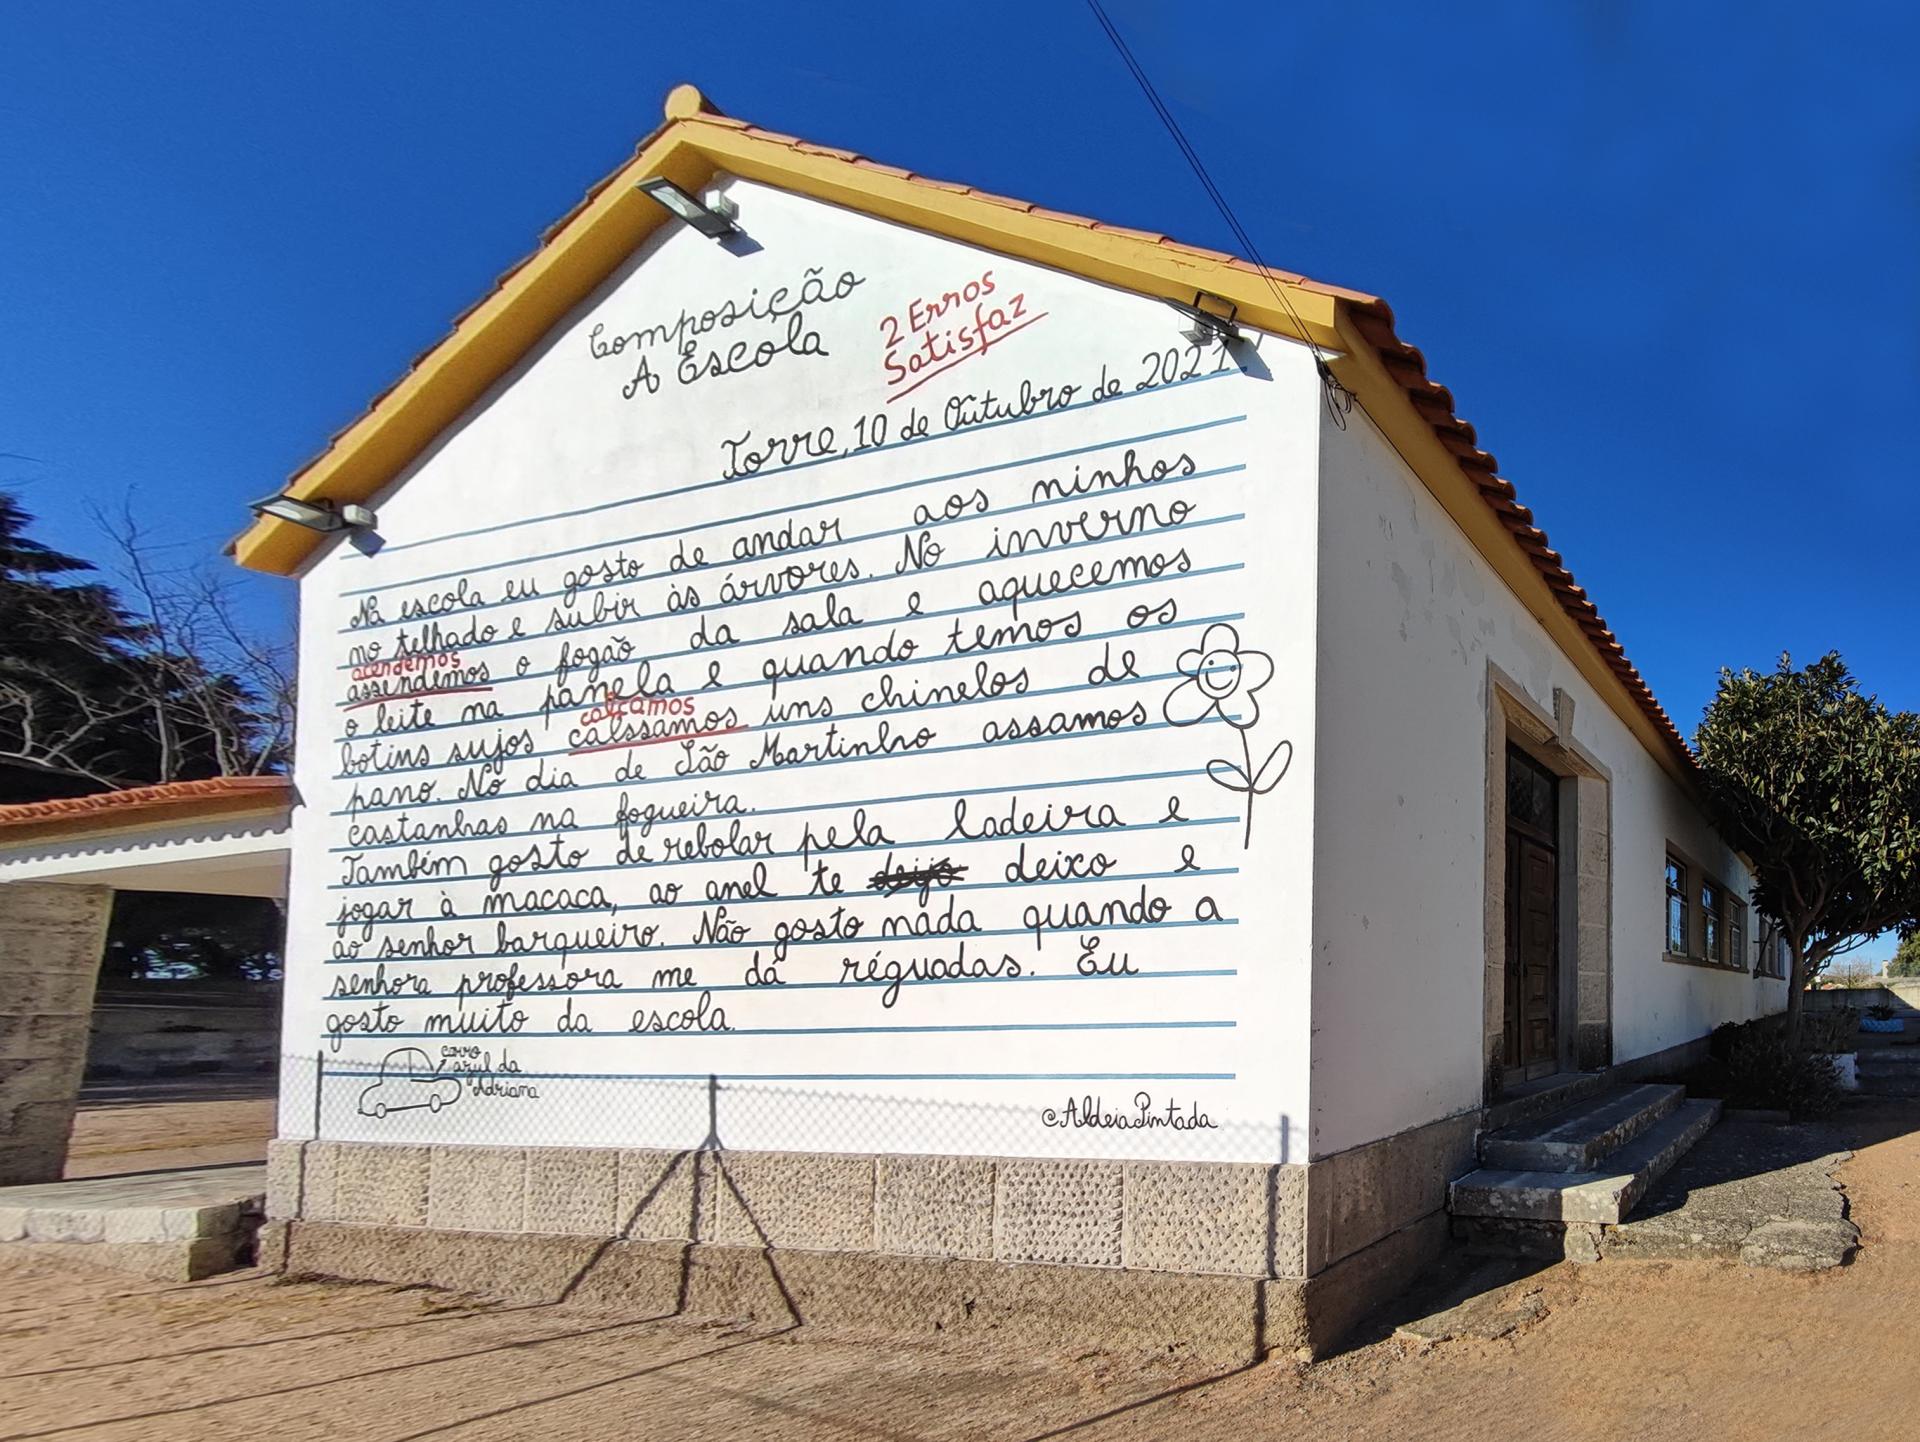 Composição
A Escola
2 Erros
Satisfaz
Torre, 10 de Outubro de 2021.
Na escola eu gosto de andar aos ninhos
no telhado e subir às árvores. No inverno
acendemos
assendemos o fogão da sala e aquecemos
o leite na panela e quando temos os
calçamos
botins sujos calssamos uns chinelos de
pano. No dia de São Martinho assamos
castanhas na fogueira.
Também gosto de rebolar pela ladeira e
jogar à macaca, ao anel te deijo deixo e
ao senhor barqueiro. Não gosto nada quando a
senhora professora me dá réguadas. Eu
gosto muito da escola.
carro
azul da
Adriana
@AldeiaPintada